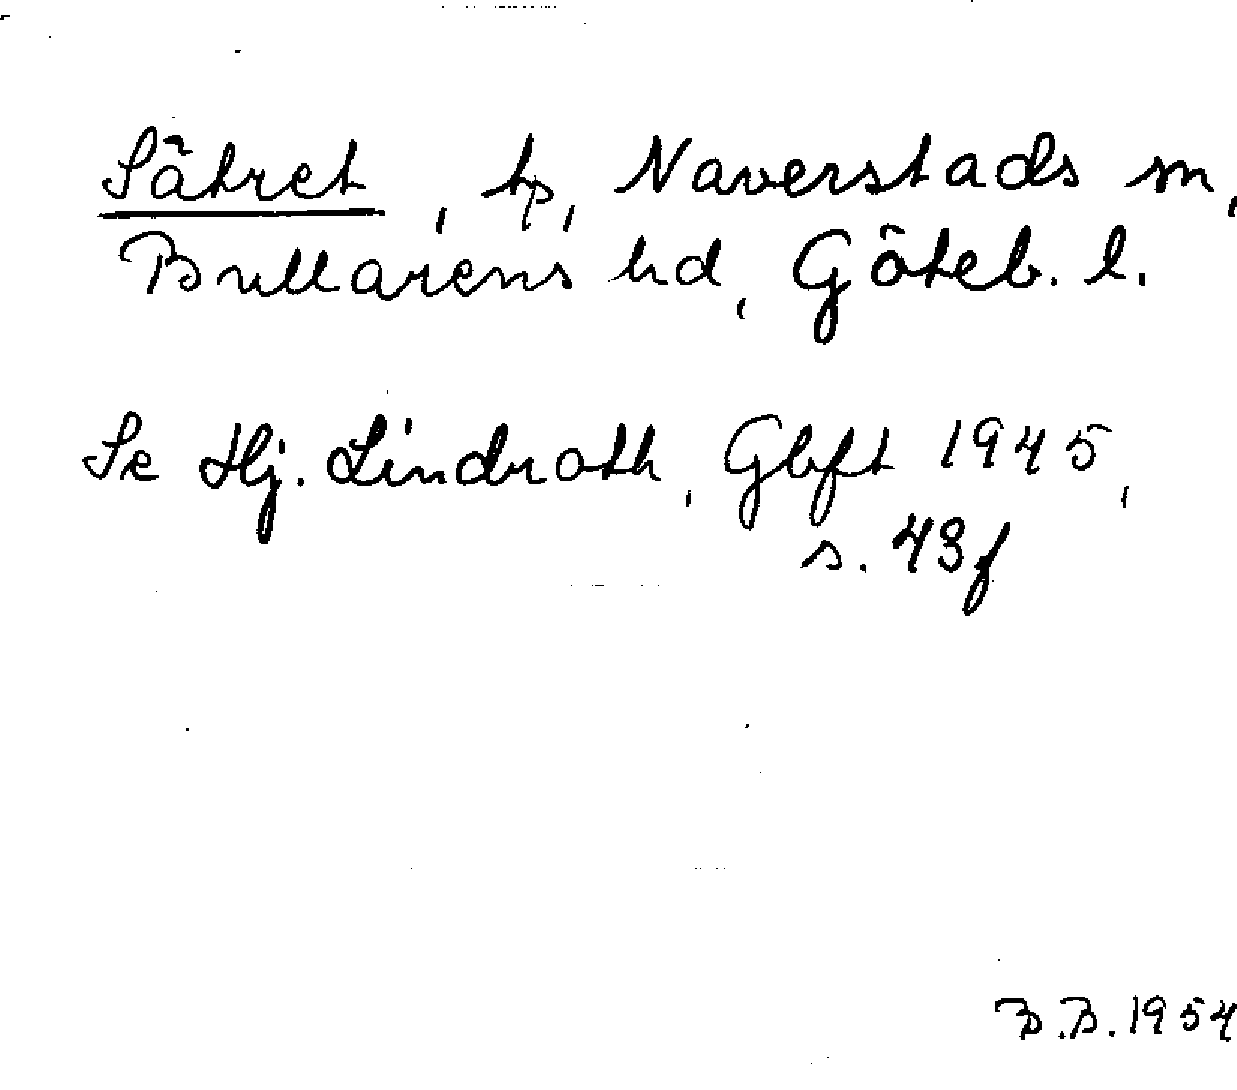 Sätret, tp, Naverstads sn,
Bullarens hd, Göteb. l.
Se Hj. Lindroth, Gbft 1945,
s. 43f
B.B. 1954